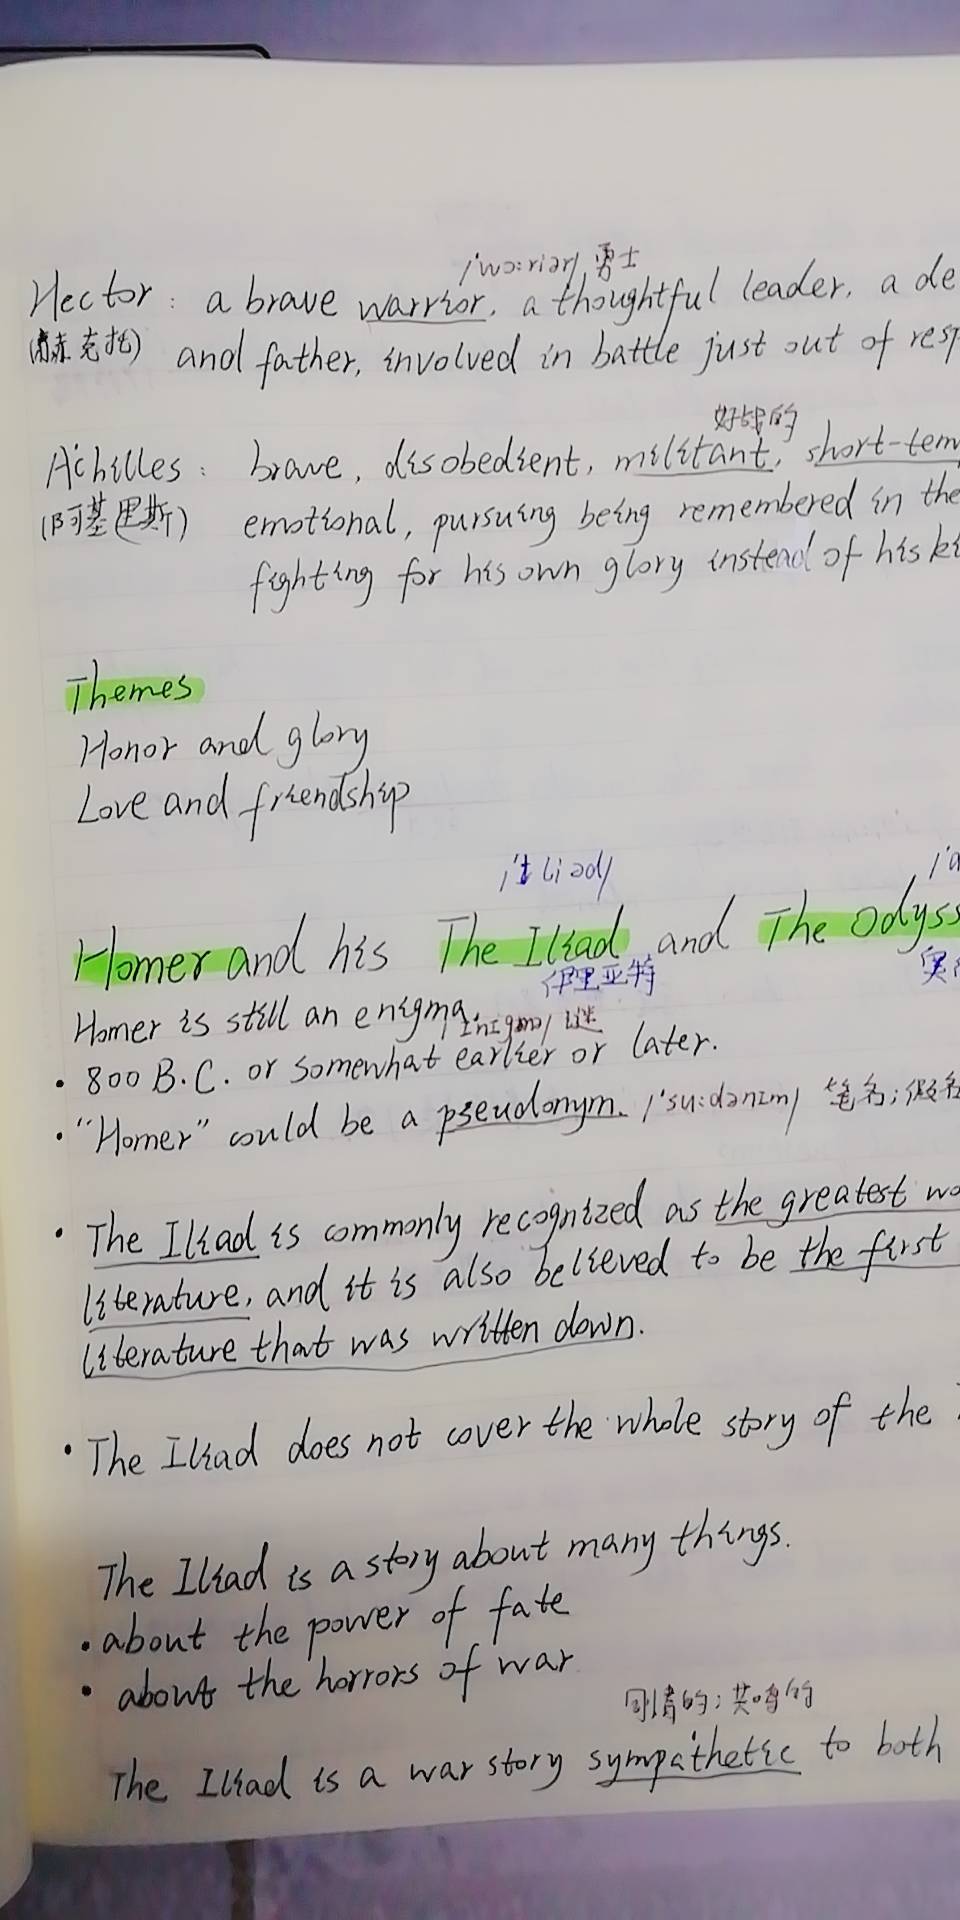 /ˈwɔ:riər/ 勇士
Hector: a brave warrior, a thoughtful leader, a de
(赫克托) and father, involved in battle just out of resp
好战的
Achilles: brave, disobedient, militant, short-tem
(阿基里斯) emotional, pursuing being remembered in the
fighting for his own glory instead of his ki
Themes
Honor and glory
Love and friendship
/ˈɪliəd/ /ˈɑ
Homer and his The Iliad and The Odyss
伊里亚特 奥
Homer is still an enigma. /ɪˈnɪgmə/ 谜
• 800 B.C. or somewhat earlier or later.
• "Homer" could be a pseudonym. /ˈsu:dənɪm/ 笔名;假名
• The Iliad is commonly recognized as the greatest wo
literature, and it is also believed to be the first
literature that was written down.
• The Iliad does not cover the whole story of the
The Iliad is a story about many things.
• about the power of fate
• about the horrors of war
同情的;共鸣的
The Iliad is a war story sympathetic to both